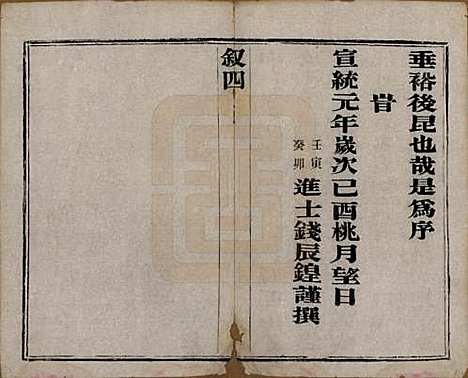 垂裕後昆也哉是爲序
旹
宣統元年歲次己酉桃月望日
壬寅
癸卯
進士錢辰鍠謹撰
叙四